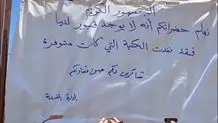 الجمهور الكريم
نعلم حضراتكم أنه لا يوجد تمور لدينا
فقد نفدت الكمية التي كانت متوفرة
شاكرين لكم حسن تعاونكم
إدارة